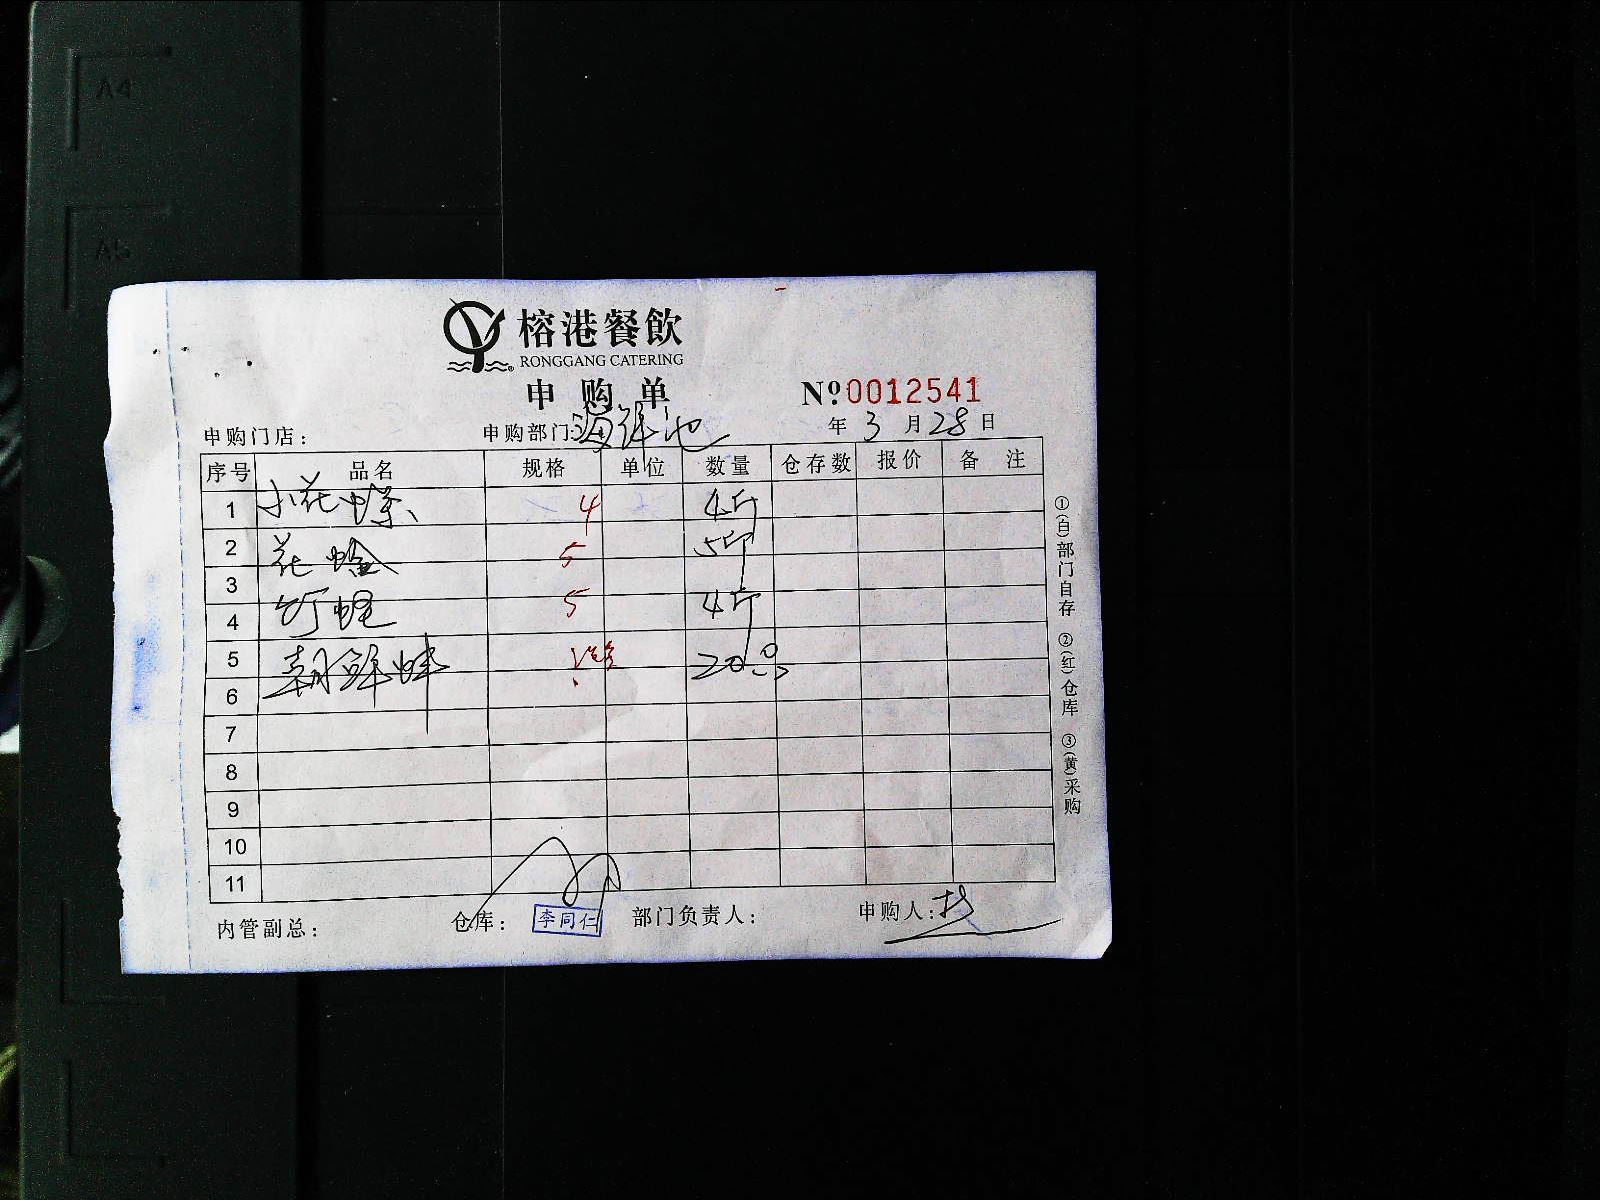 A4
A5
榕港餐飲
RONGGANG CATERING
申购单
Nº0012541
申购门店：
申购部门:海鲜池
年 3 月 28 日
序号 品名 规格 单位 数量 仓存数 报价 备 注
1 小花螺 4 4斤
2 花蛤 5 5斤
3
4 竹蛏 5 4斤
5 朝鲜蚌 20只
6
7
8
9
10
11
①(白)部门自存 ②(红)仓库 ③(黄)采购
内管副总：
仓库： 李同仁
部门负责人：
申购人：